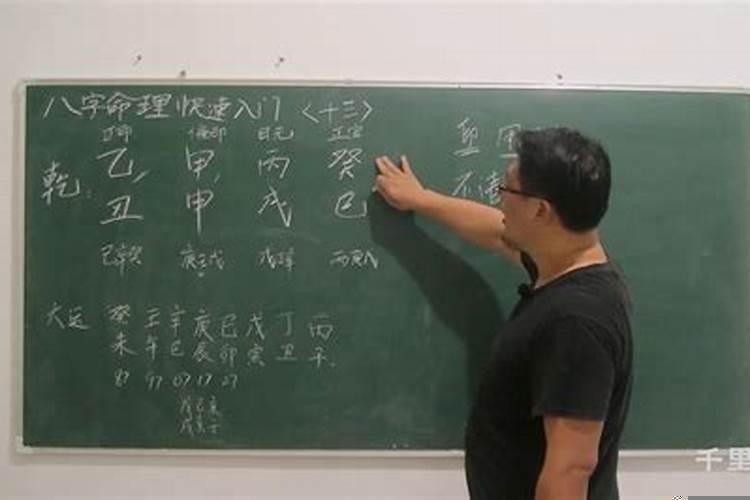 八字命理快速入门〈十三〉
正印 偏印 日元 正官
乙, 甲, 丙 癸
乾: 丑 申 戌 巳
己辛癸 庚壬戊 戊辛丁 丙庚戊
大运 癸 壬 辛 庚 己 戊 丁 丙
未 午 巳 辰 卯 寅 丑 子.
87 97 07 17 27
千里